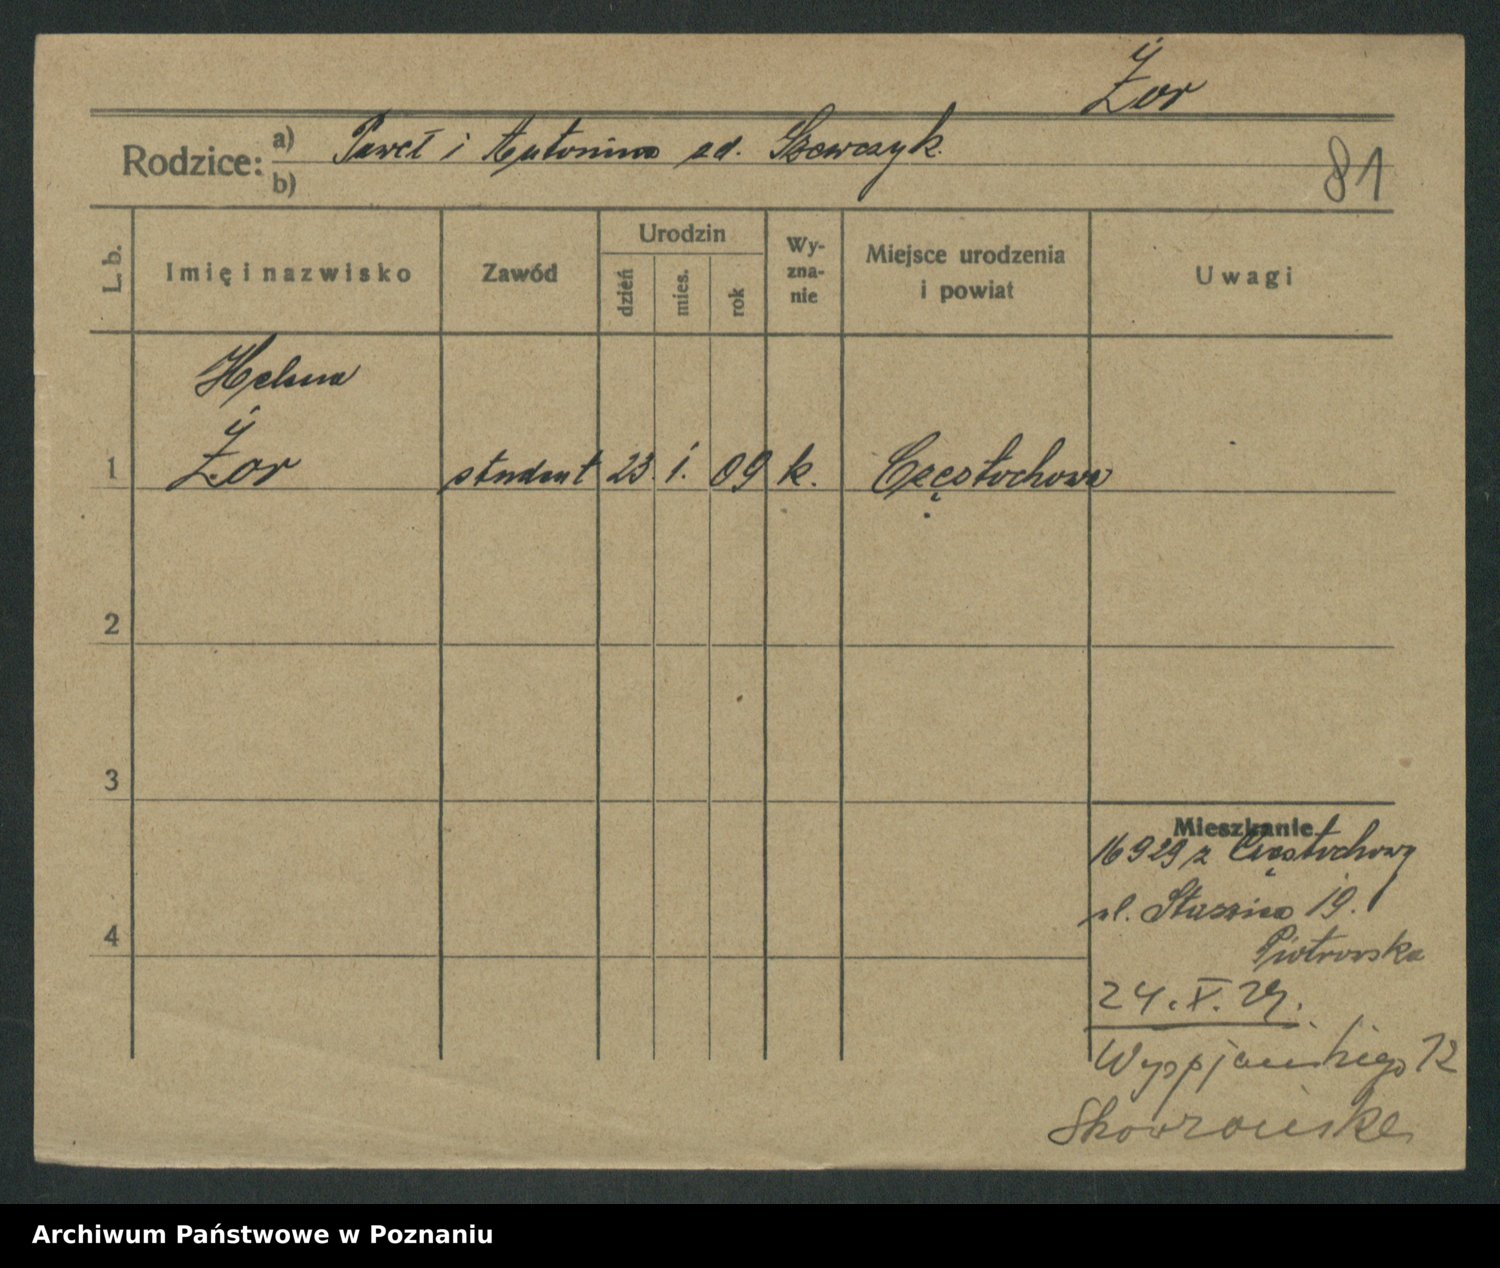 Żor
Rodzice: a) Paweł i Antonina zd. Szewczyk.
b)
81
L. b. Imię i nazwisko Zawód Urodzin dzień mies. rok Wy-zna-nie Miejsce urodzenia i powiat Uwagi
Helena
1 Żor student 23. 1. 09 k. Częstochowa
2
3
Mieszkanie
16 9 29 z Częstochowy
ul. Staszica 19.
4
Piotrowska
24. X. 29.
Wyspjańskiego 12
Skowrońska
Archiwum Państwowe w Poznaniu